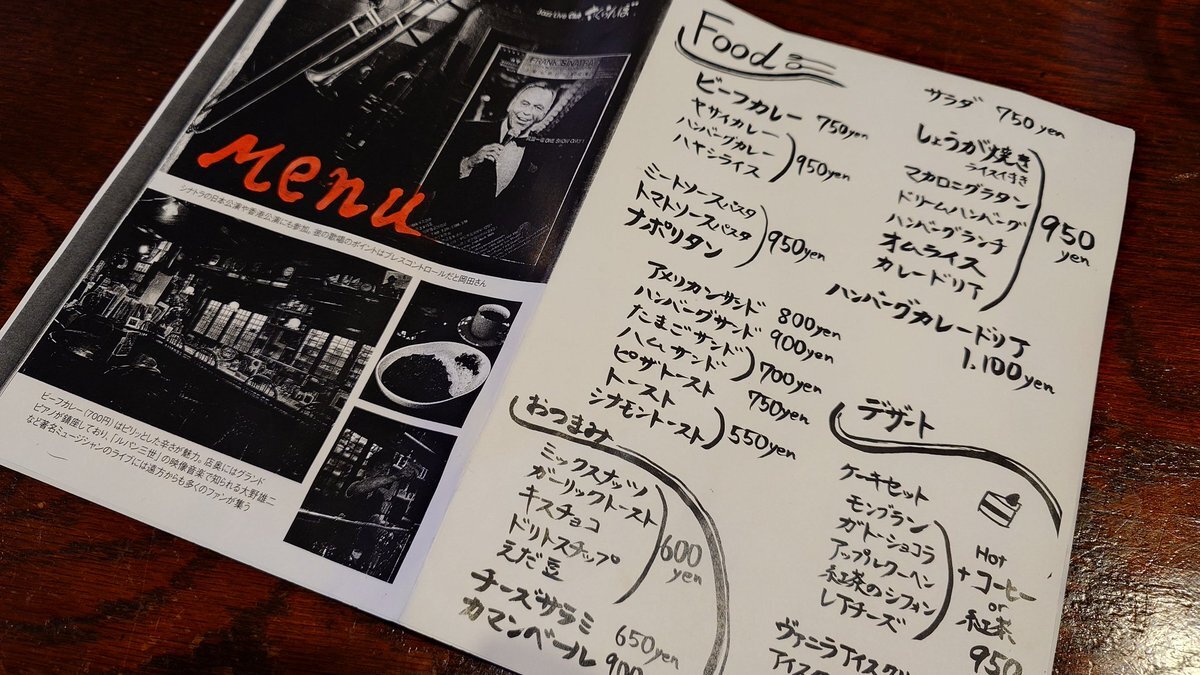 Jazz Live Club さくらんぼ
FRANK SINATRA
Menu
シナトラの日本公演や香港公演にも参加。彼の歌唱のポイントはブレスコントロールだと岡田さん
ビーフカレー(700円)はピリッとした辛さが魅力。店奥にはグランド
ピアノが鎮座しており、「ルパン三世」の映像音楽で知られる大野雄二
など著名ミュージシャンのライブには遠方からも多くのファンが集う
Food
ビーフカレー 750yen
ヤサイカレー
ハンバーグカレー
ハヤシライス
950yen
ミートソースパスタ
トマトソースパスタ
ナポリタン
950yen
アメリカンサンド 800yen
ハンバーグサンド 900yen
たまごサンド
ハムサンド
700yen
ピザトースト 750yen
トースト
シナモントースト
550yen
おつまみ
ミックスナッツ
ガーリックトースト
キスチョコ
ドリトスチップ
えだ豆
600
yen
チーズサラミ 650yen
カマンベール 900
サラダ 750yen
しょうが焼き
ライス付き
マカロニグラタン
ドリームハンバーグ
ハンバーグランチ
オムライス
カレードリア
950
yen
ハンバーグカレードリア
1,100yen
デザート
ケーキセット
モンブラン
ガトーショコラ
アップルクーヘン
紅茶のシフォン
レアチーズ
Hot
+コーヒー
or
紅茶
950
ヴァニラアイスクリ
アイスク